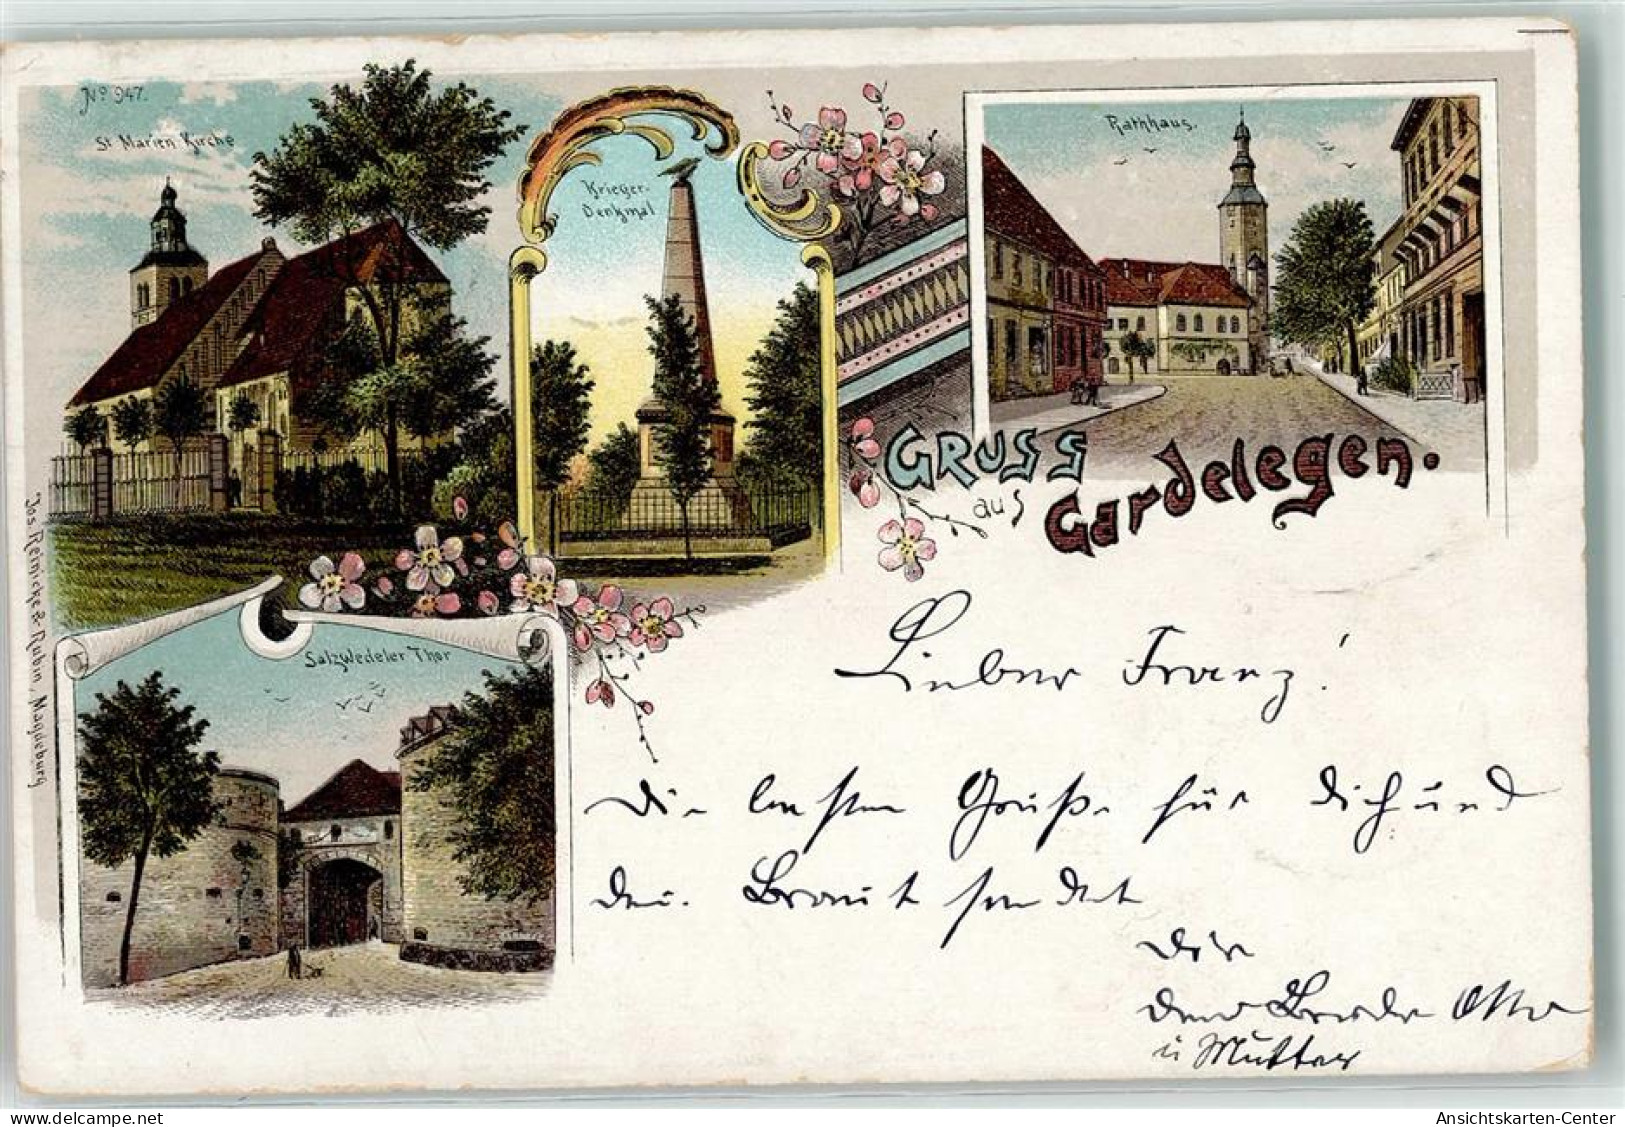 No 947.
St Marien Kirche
Krieger-
Denkmal
Rathhaus.
GRUSS
aus
Gardelegen.
Salzwedeler Thor
Jos. Reinicke & Rubin, Magdeburg
Lieber Franz!
Die besten Grüße für Dich und
Braut sendet
Dir
dein Bruder Otto
u Mutter
36701527
Ansichtskarten-Center